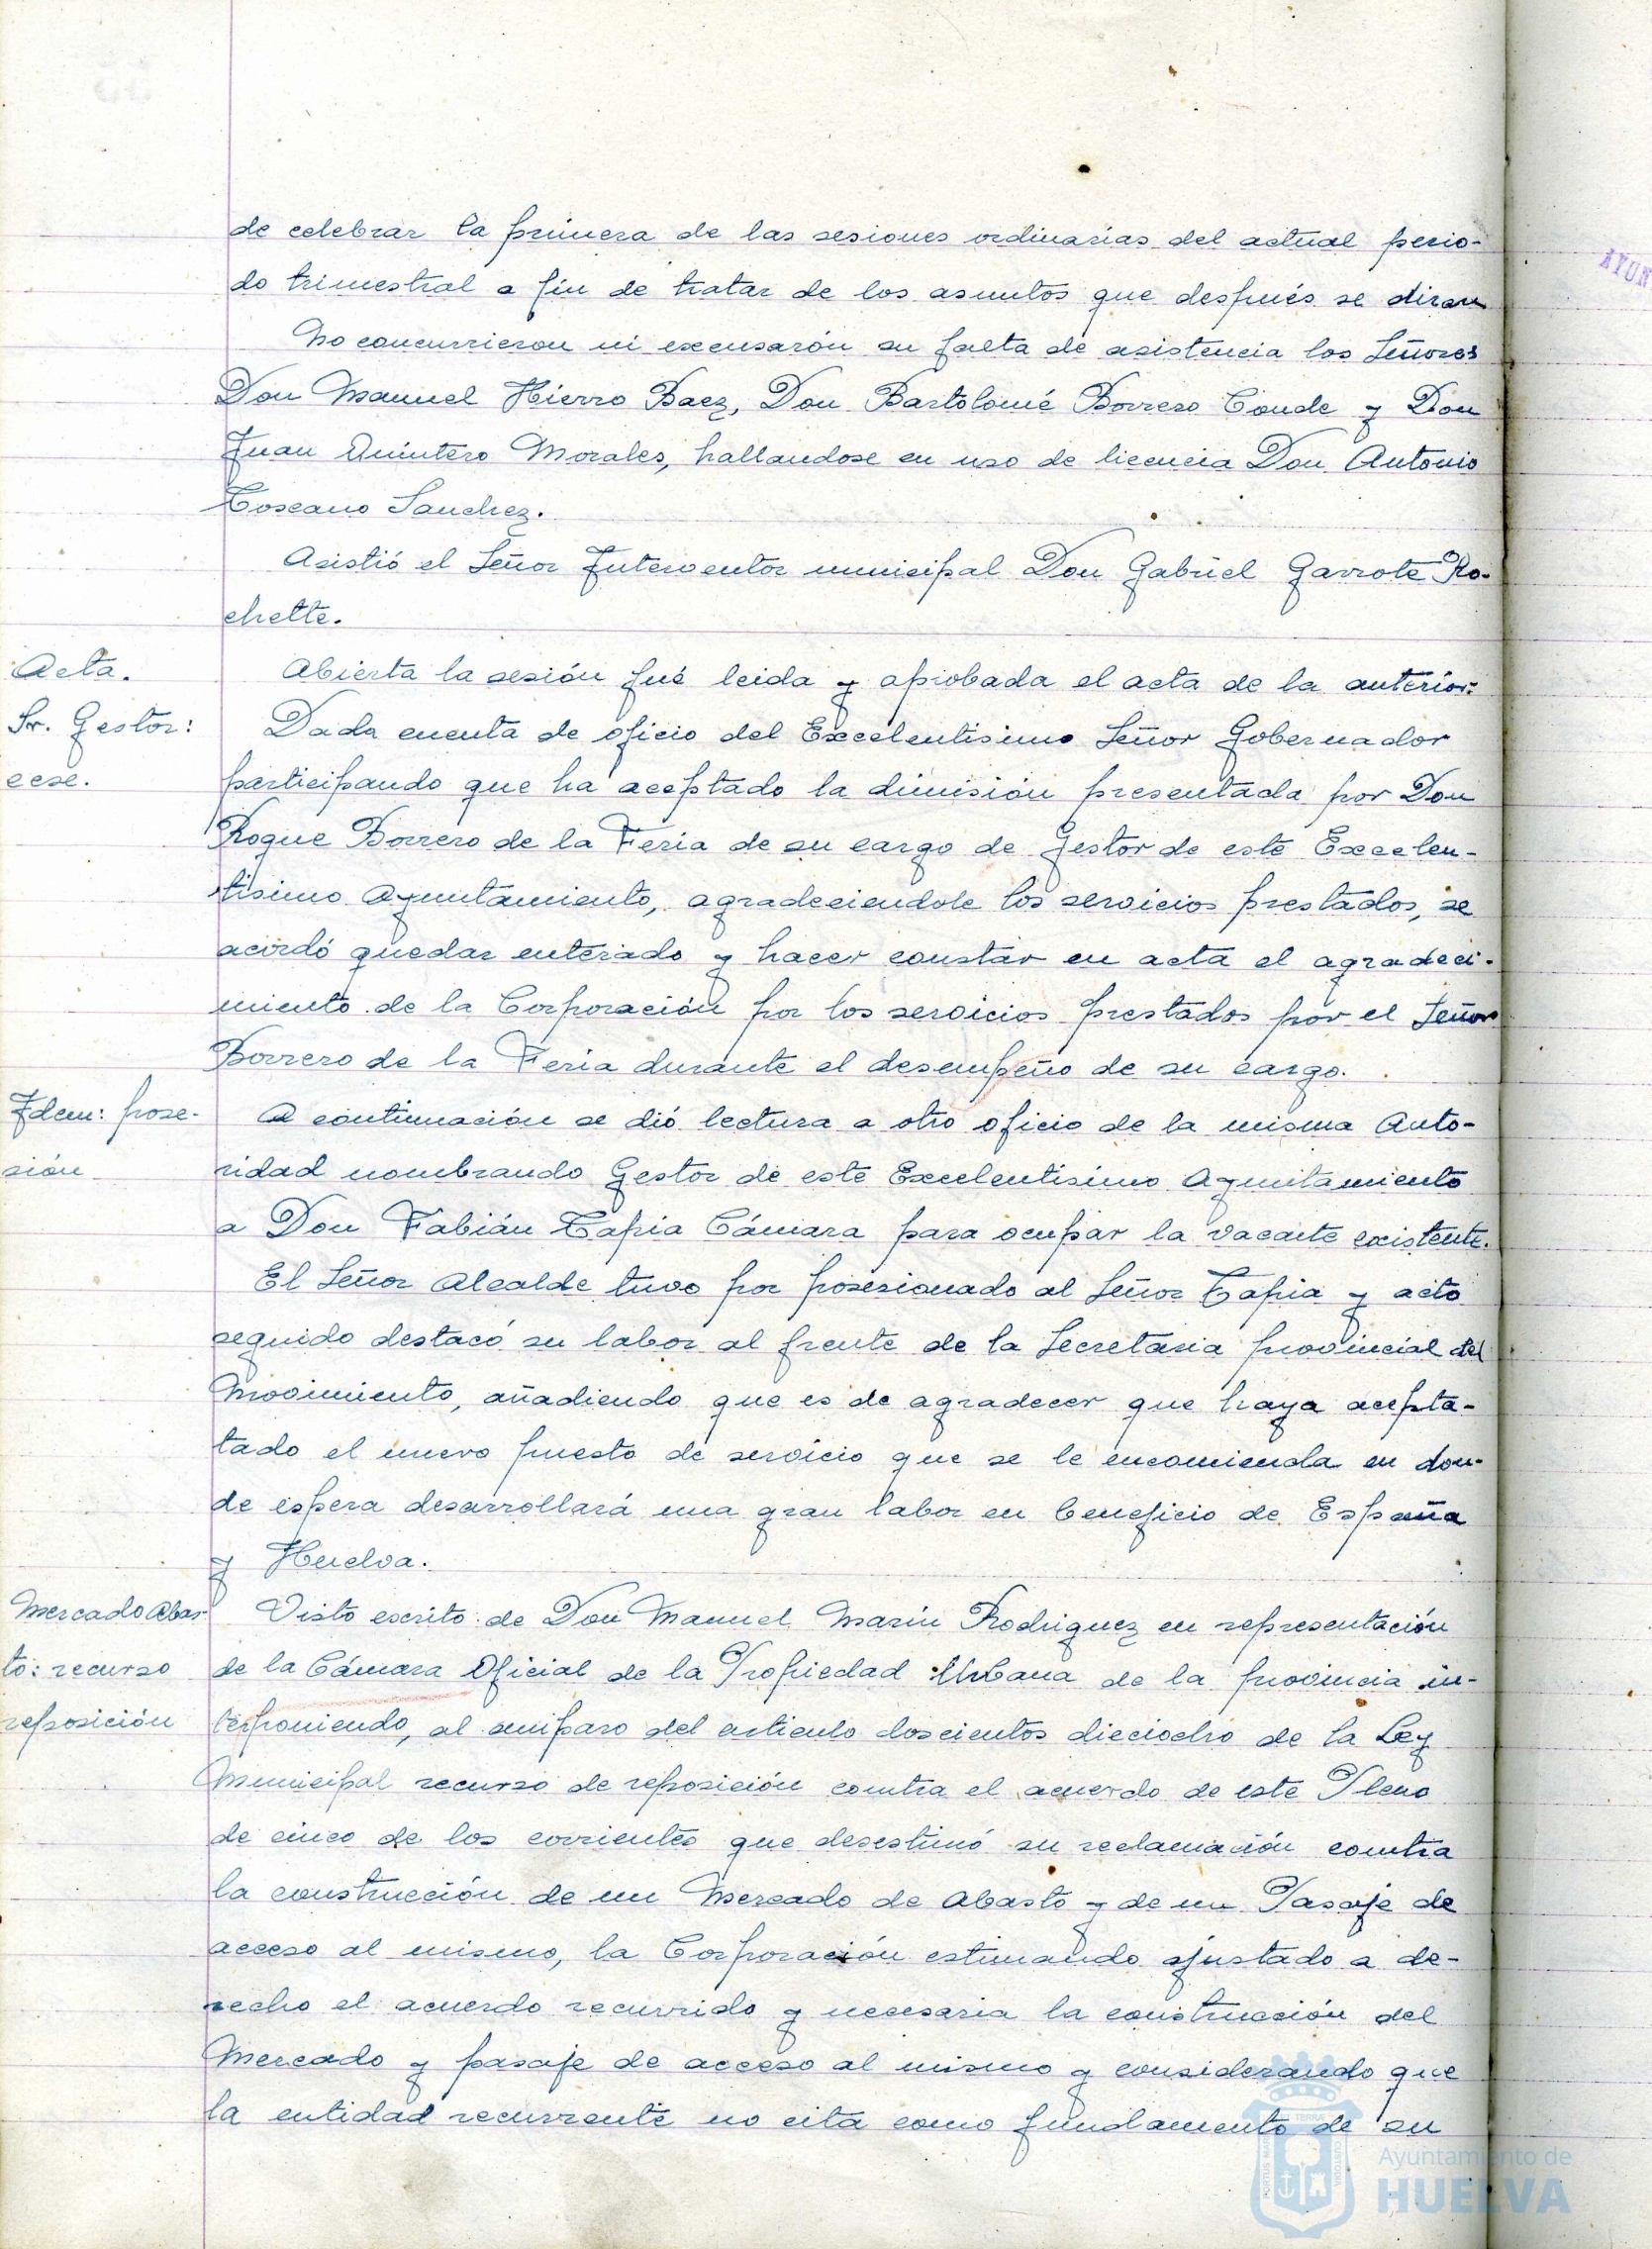 de celebrar la primera de las sesiones ordinarias del actual perio-
do trimestral a fin de tratar de los asuntos que después se diran
No concurrieron ni excusarón su falta de asistencia los Señores
Don Manuel Hierro Baez, Don Bartolomé Borrero Conde y Don
Juan Quintero Morales, hallandose en uso de licencia Don Antonio
Toscano Sanchez.
Asistió el Señor Interventor municipal Don Gabriel Garrote Ro-
chette.
Acta.
Abierta la sesión fué leida y aprobada el acta de la anterior.
Sr. Gestor:
cese.
Dada cuenta de oficio del Excelentisimo Señor Gobernador
participando que ha aceptado la dimisión presentada por Don
Roque Borrero de la Feria de su cargo de Gestor de este Excelen-
tisimo Ayuntamiento, agradeciendole los servicios prestados, se
acordó quedar enterado y hacer constar en acta el agradeci-
miento de la Corporación por los servicios prestados por el Señor
Borrero de la Feria durante el desempeño de su cargo.
Idem: pose-
sión
A continuación se dió lectura a otro oficio de la misma Auto-
ridad nombrando Gestor de este Excelentisimo Ayuntamiento
a Don Fabián Tapia Cámara para ocupar la vacante existente.
El Señor Alcalde tuvo por posesionado al Señor Tapia y acto
seguido destacó su labor al frente de la Secretaria provincial del
Movimiento, añadiendo que es de agradecer que haya acepta-
tado el nuevo puesto de servicio que se le encomienda en don-
de espera desarrollará una gran labor en beneficio de España
y Huelva.
Mercado Abas-
to: recurso
reposición
Visto escrito de Don Manuel Marin Rodriguez en representación
de la Cámara Oficial de la Propiedad Urbana de la provincia in-
terponiendo, al amparo del articulo doscientos dieciocho de la Ley
Municipal recurso de reposición contra el acuerdo de este Pleno
de cinco de los corrientes que desestimó su reclamación contra
la construcción de un Mercado de Abasto y de un Pasaje de
acceso al mismo, la Corporación estimando ajustado a de-
recho el acuerdo recurrido y necesaria la construcción del
Mercado y pasaje de acceso al mismo y considerando que
la entidad recurrente no cita como fundamento de su
AYUN
Ayuntamiento de
HUELVA